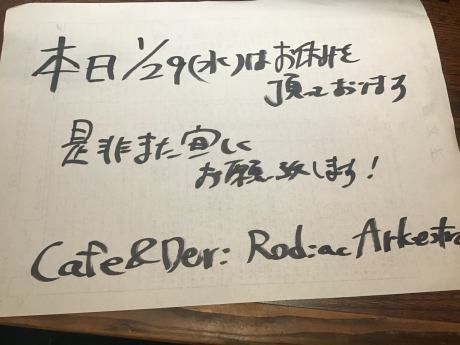 本日1/29(水)はお休みを
頂いております
是非また宜しく
お願い致します！
Cafe&Deri Rodiac Arkestra